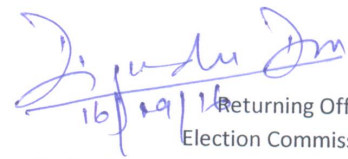 16/09/16
Returning Off
Election Commiss